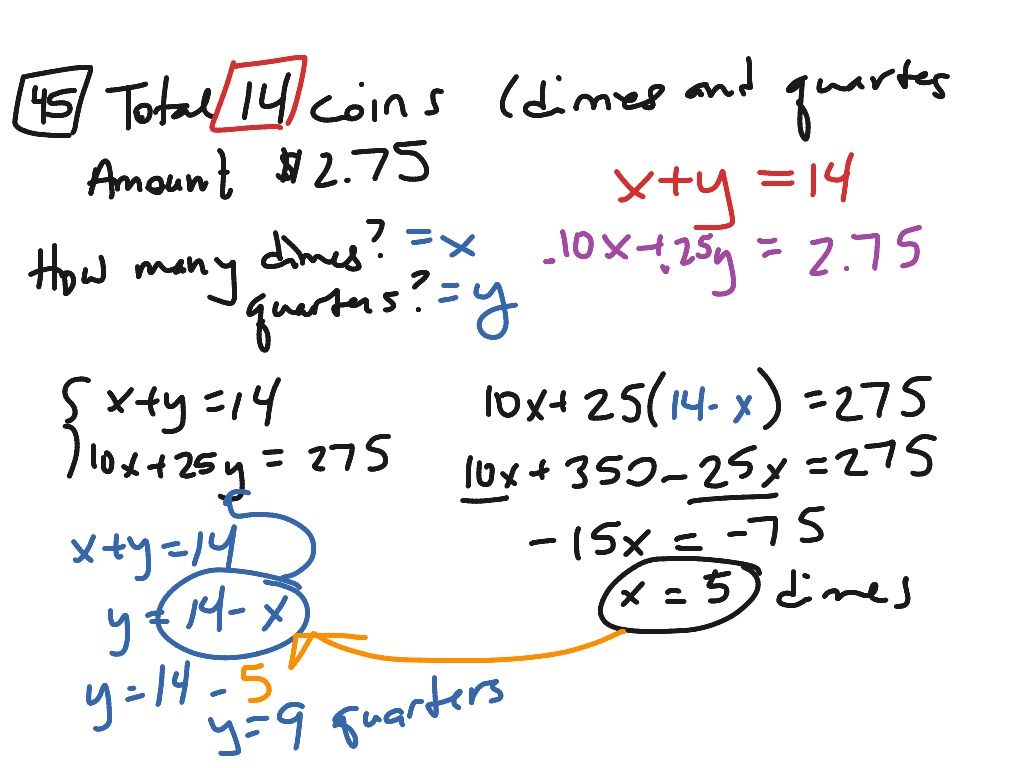 45 Total 14 coins (dimes and quartes
Amount $2.75
x+y=14
How many dimes? = x
.10x+.25y = 2.75
quarters? = y
x+y=14
10x+25y = 275
x+y=14
y=14-x
y=14-5
y=9 quarters
10x+25(14-x)=275
10x+350-25x=275
-15x=-75
x=5 dimes